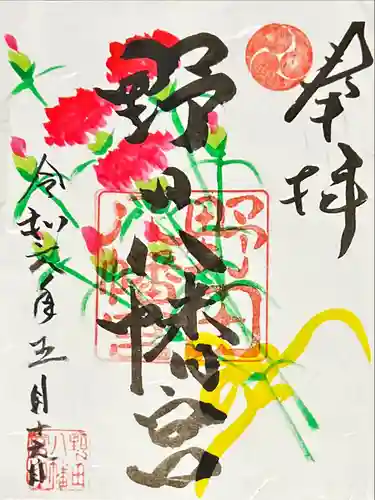 奉拝
野田八幡宮
令和六年五月十六日
野田
八幡宮
野田
八幡宮